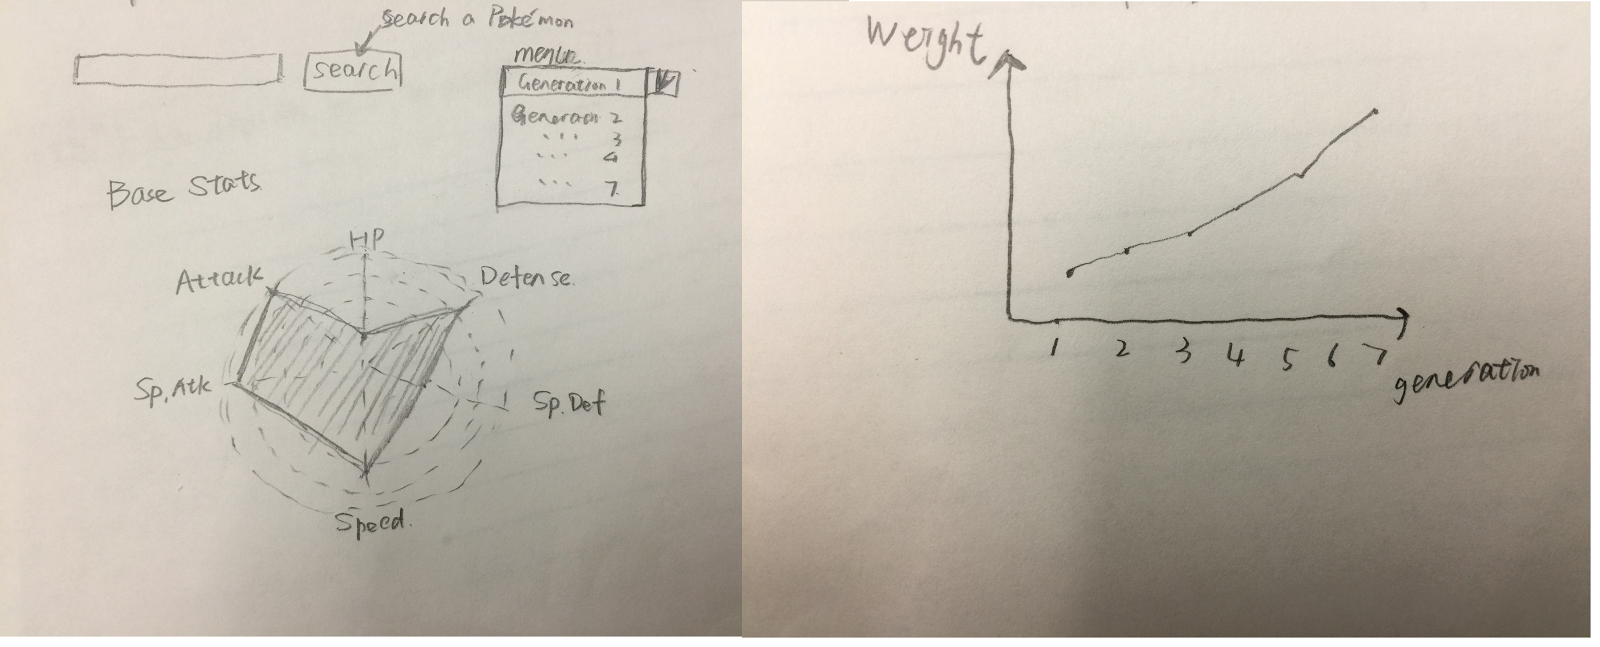 search a Pokémon
search
menu
Generation 1
Generation 2
... 3
... 4
... 7
Base Stats
HP
Attack
Defense
Sp. Atk
Sp. Def
Speed
Weight
1 2 3 4 5 6 7
generation